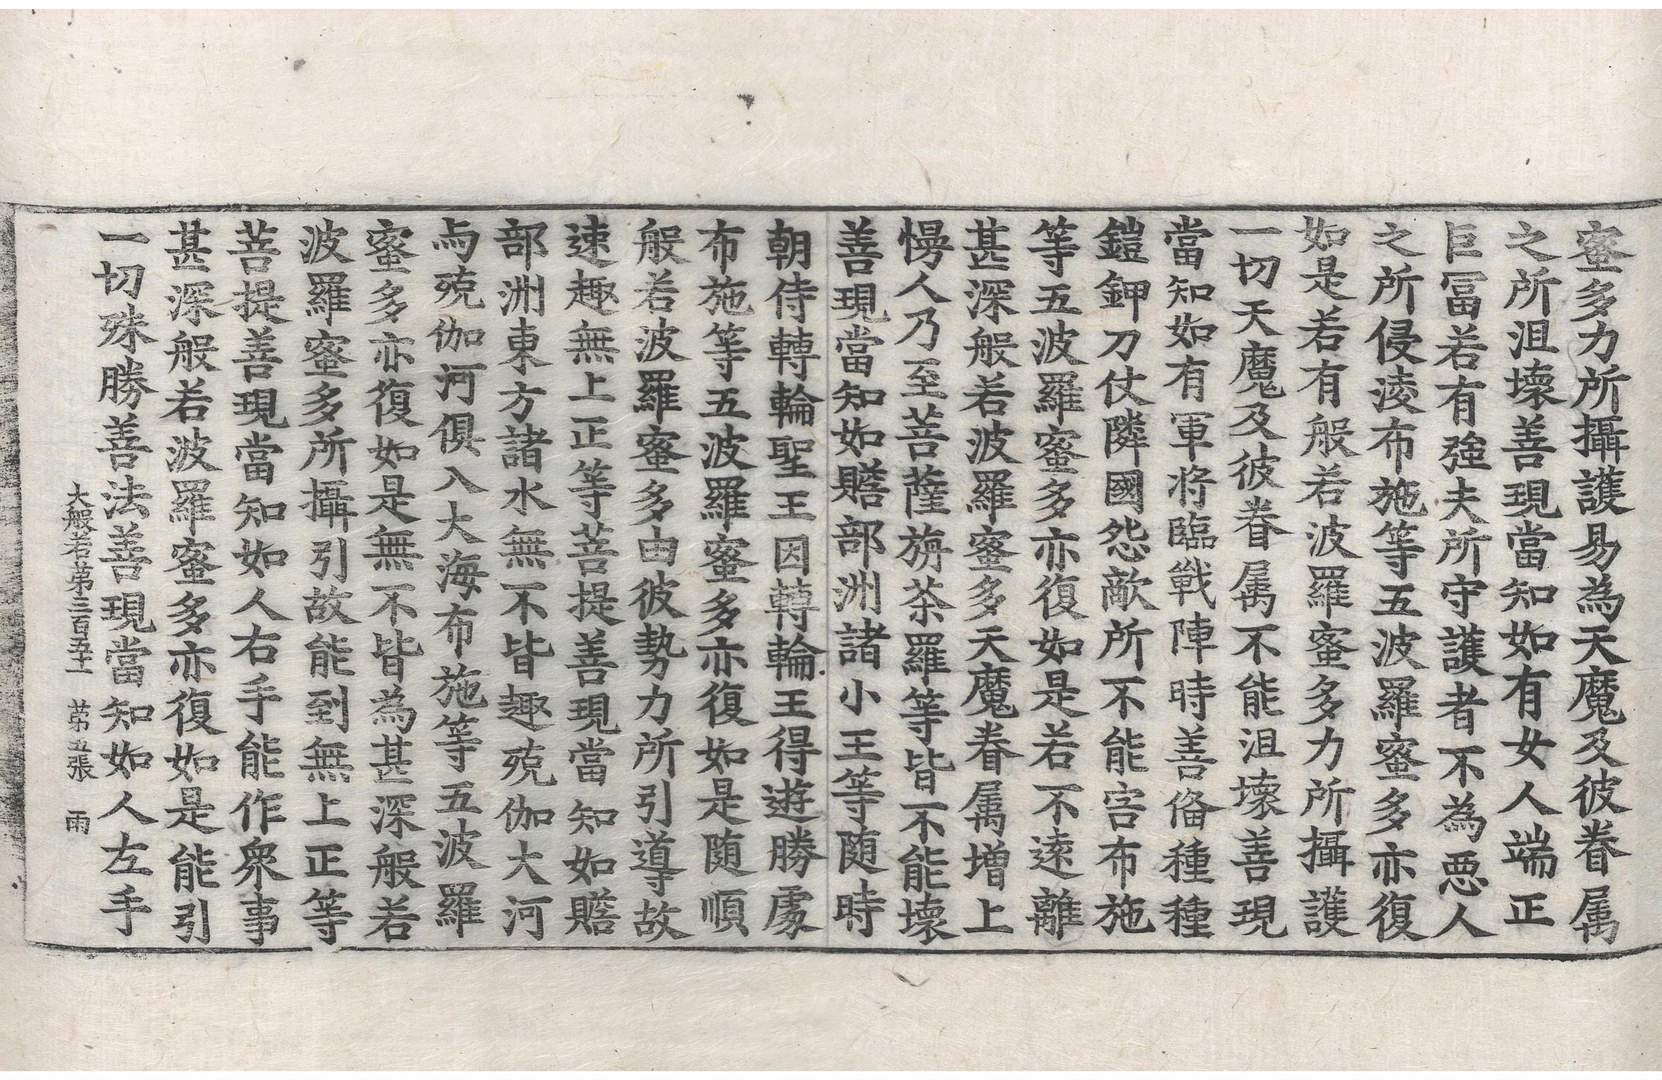 蜜多力所攝護易為天魔及彼眷属
之所沮壞善現當知如有女人端正
巨冨若有強夫所守護者不為惡人
之所侵淩布施等五波羅蜜多亦復
如是若有般若波羅蜜多力所攝護
一切天魔及彼眷属不能沮壞善現
當知如有軍將臨戰陣時善俻種種
鎧鉀刀仗隣國怨敵所不能害布施
等五波羅蜜多亦復如是若不遠離
甚深般若波羅蜜多天魔眷属增上
慢人乃至菩薩旃荼羅等皆不能壞
善現當知如贍部洲諸小王等随時
朝侍轉輪聖王因轉輪王得遊勝處
布施等五波羅蜜多亦復如是随順
般若波羅蜜多由彼勢力所引導故
速趣無上正等菩提善現當知如贍
部洲東方諸水無不皆趣殑伽大河
与殑伽河俱入大海布施等五波羅
蜜多亦復如是無不皆為甚深般若
波羅蜜多所攝引故能到無上正等
菩提善現當知如人右手能作衆事
甚深般若波羅蜜多亦復如是能引
一切殊勝善法善現當知如人左手
大般若第三百五十一 第五張 雨